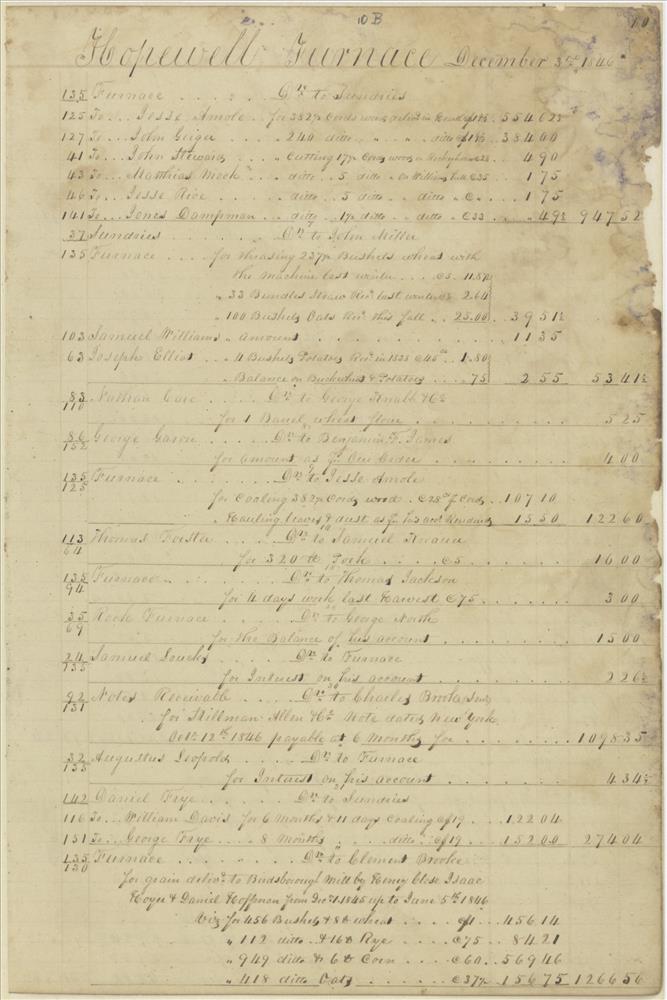 10 B
70
Hopewell Furnace December 3rd 1846
135 Furnace . . . . Dr to Sundries
125 To . . . Jesse Amole . . for 382½ Cords wood 354 62½
127 To . . . John Geiger . . " 240 ditto " " ditto 384 00
41 To . . . John Steward . . " Cutting 17½ Cords wood 4 90
43 To . . . Matthias Mock . . " ditto . . 5 ditto 1 75
46 To . . . Jesse Rice . . " ditto . . 5 ditto " ditto 1 75
141 To . . . Jones Dampman . . ditto . . 1½ ditto . . ditto . . @33 . . 49½ 947 52
37 Sundries . . . . Dr to John Miller
135 Furnace . . . . for thrasing 237½ Bushels wheat with
the machine last winter . . . @5 11.87½
" 33 Bundles Straw Recd last winter @8 2.64
" 100 Bushels Oats Recd this fall . . 25.00 39 51½
103 Samuel Williams " amount . . . . 11 35
63 Joseph Elliot . . " 4 Bushels Potatoes Recd in 1835 @45cts 1.80
Balance on Buckwheat & Potatoes . . . 75 2 55 53 41½
83/110 Nathan Care . . . Dr to George Knabb & Co
for 1 Barrel wheat flour . . . . 5 25
86/152 George Gason . . . . Dr to Benjamin F. James
for amount as pr Our Order . . . . 4 00
135/125 Furnace . . . . Dr to Jesse Amole
for Coaling 382½ Cords wood . . @28cts p Cord . . 107 10
" Hauling leaves & dust as pr his acct Rendered 15 50 122 60
113/64 Thomas Foister . . . . Dr to Samuel
for 320 lb Pork . . . @5 . . . . 16 00
135/94 Furnace . . . . Dr to Thomas Jackson
for 4 days work last Harvest @75 . . . . 3 00
35/69 Rock Furnace . . . . Dr to George North
for the Balance of his account . . . . 15 00
24/135 Samuel Loucks . . . . Dr to Furnace
for Interest on his account . . . . 2 26½
92/131 Notes Receivable . . . . Dr to Charles Brooke Senr
for Stillman Allen & Co Note dated New York
Octr 12th 1846 payable at 6 Months for . . . . 1098 35
32/135 Augustus Leopold . . . . Dr to Furnace
for Interest on his account . . . . 4 34½
142 Daniel Frye . . . . Dr to Sundries
116 To . . William Davis for 6 Months & 11 days Coaling @19 . . 122 04
151 To . . George Frye . . " 8 Months " ditto . @19 . . . 152 00 274 04
135/130 Furnace . . . . Dr to Clement Brooke
for grain delivd to Birdsborough Mill by Henry Close Isaac
Hoyer & Daniel Hoffman from Decr 1 1845 up to June 5th 1846
Viz for 456 Bushels & 8 lb wheat . . . @1 . . 456 14
" 112 ditto . & 16 lb Rye . . . . @75 . . 84 21
" 949 ditto & 6 lb Corn . . . . @60 . 569 46
" 418 ditto Oats . . . . @37½ 156 75 1266 56